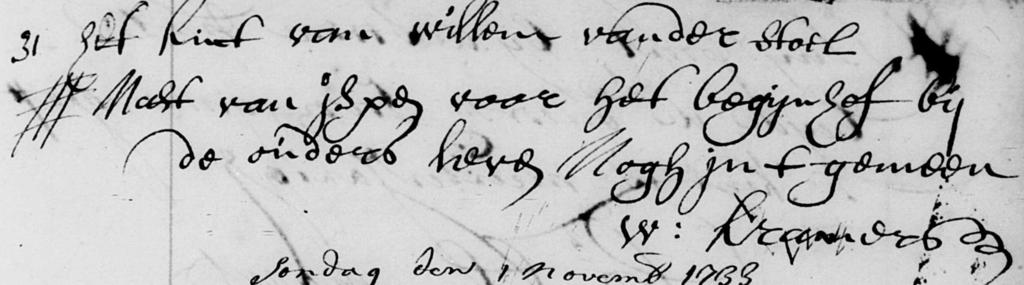 31 het kint van willem vander stoel
Maet van jspen voor het begijnhof bij
de ouders leven Nogh jn t gemeen
W: Kramers
sondag den 1 novemb 1733